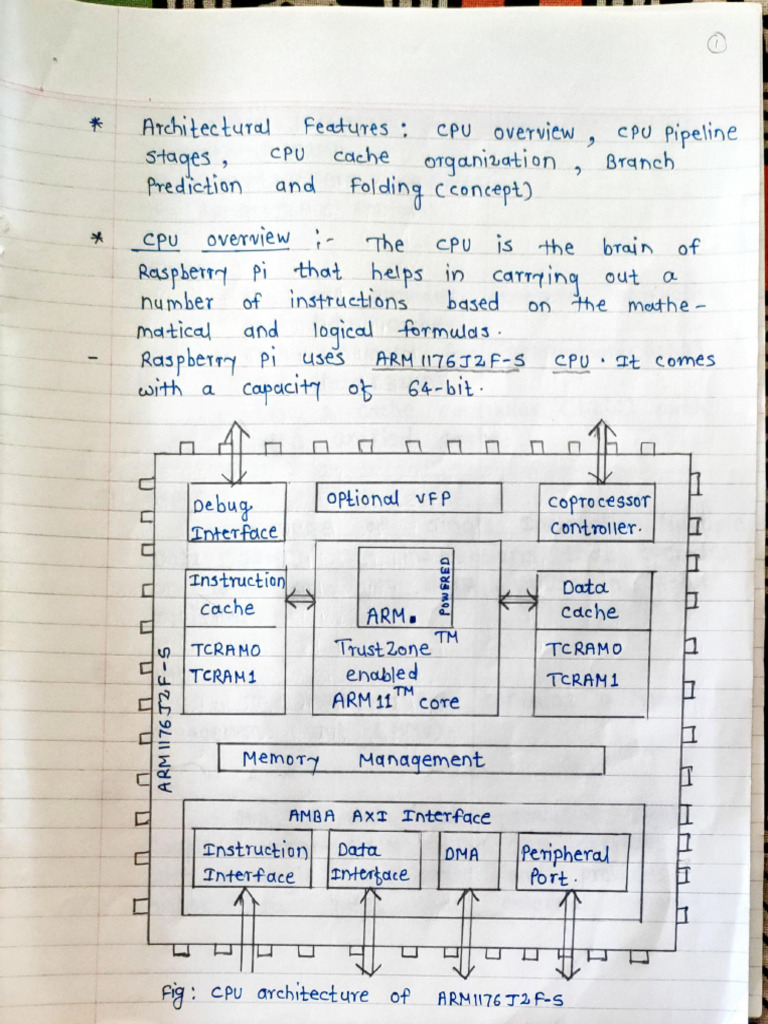 1
* Architectural Features: CPU overview, CPU Pipeline
stages, CPU cache organization, Branch
Prediction and Folding (concept)
* CPU overview :- The CPU is the brain of
Raspberry Pi that helps in carrying out a
number of instructions based on the mathe-
matical and logical formulas.
- Raspberry Pi uses ARM1176JZF-S CPU. It comes
with a capacity of 64-bit.
Debug
Interface
Optional VFP
Coprocessor
controller.
Instruction
cache
TCRAM0
TCRAM1
ARM.
POWERED
TrustZone TM
enabled
ARM11 TM core
Data
cache
TCRAM0
TCRAM1
ARM1176JZF-S
Memory Management
AMBA AXI Interface
Instruction
Interface
Data
Interface
DMA
Peripheral
Port.
Fig: CPU architecture of ARM1176JZF-S